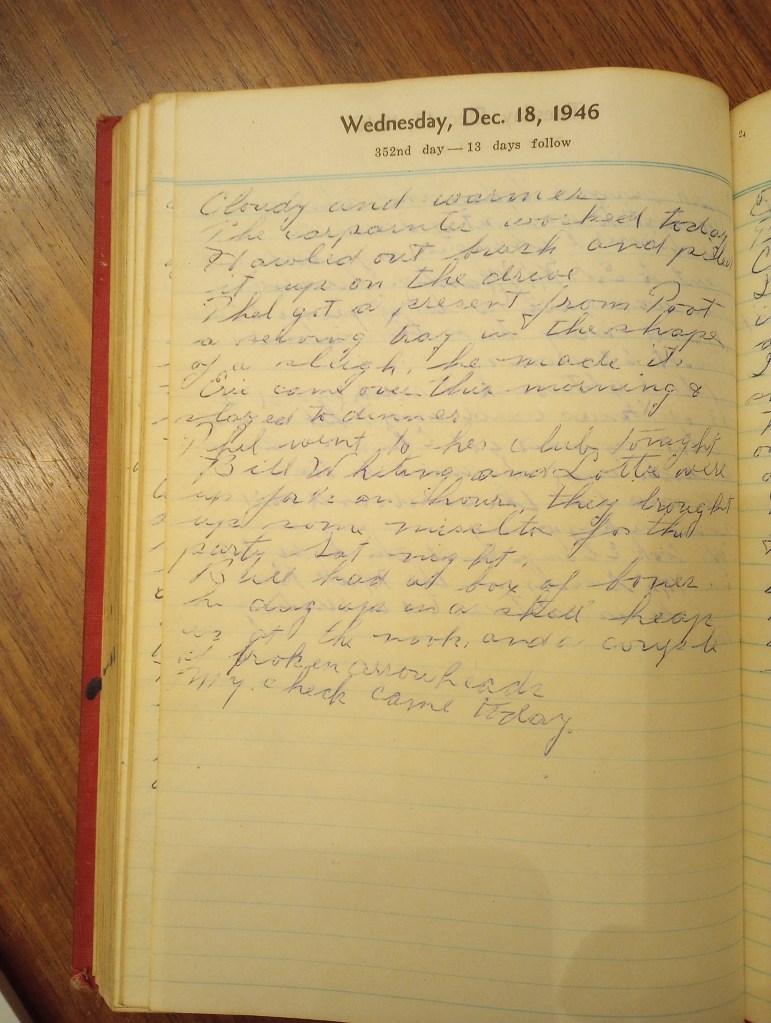 Wednesday, Dec. 18, 1946
352nd day — 13 days follow
Cloudy and warmer
The carparnter worked today
Hawled out brash and piled
it up on the drive
Phel got a present from Poot
a serving tray in the shape
of a sleigh, he made it.
Eric came over this morning &
stayed to dinner
Phel went to her club tonight
Bill Whiting and Lotta were
up for an hour, they brought
up some miselto for the
party Sat night.
Bill had at box of bones
he dug up in a shell heap
at the nook, and a couple
of broken arrowheads
My check came today.